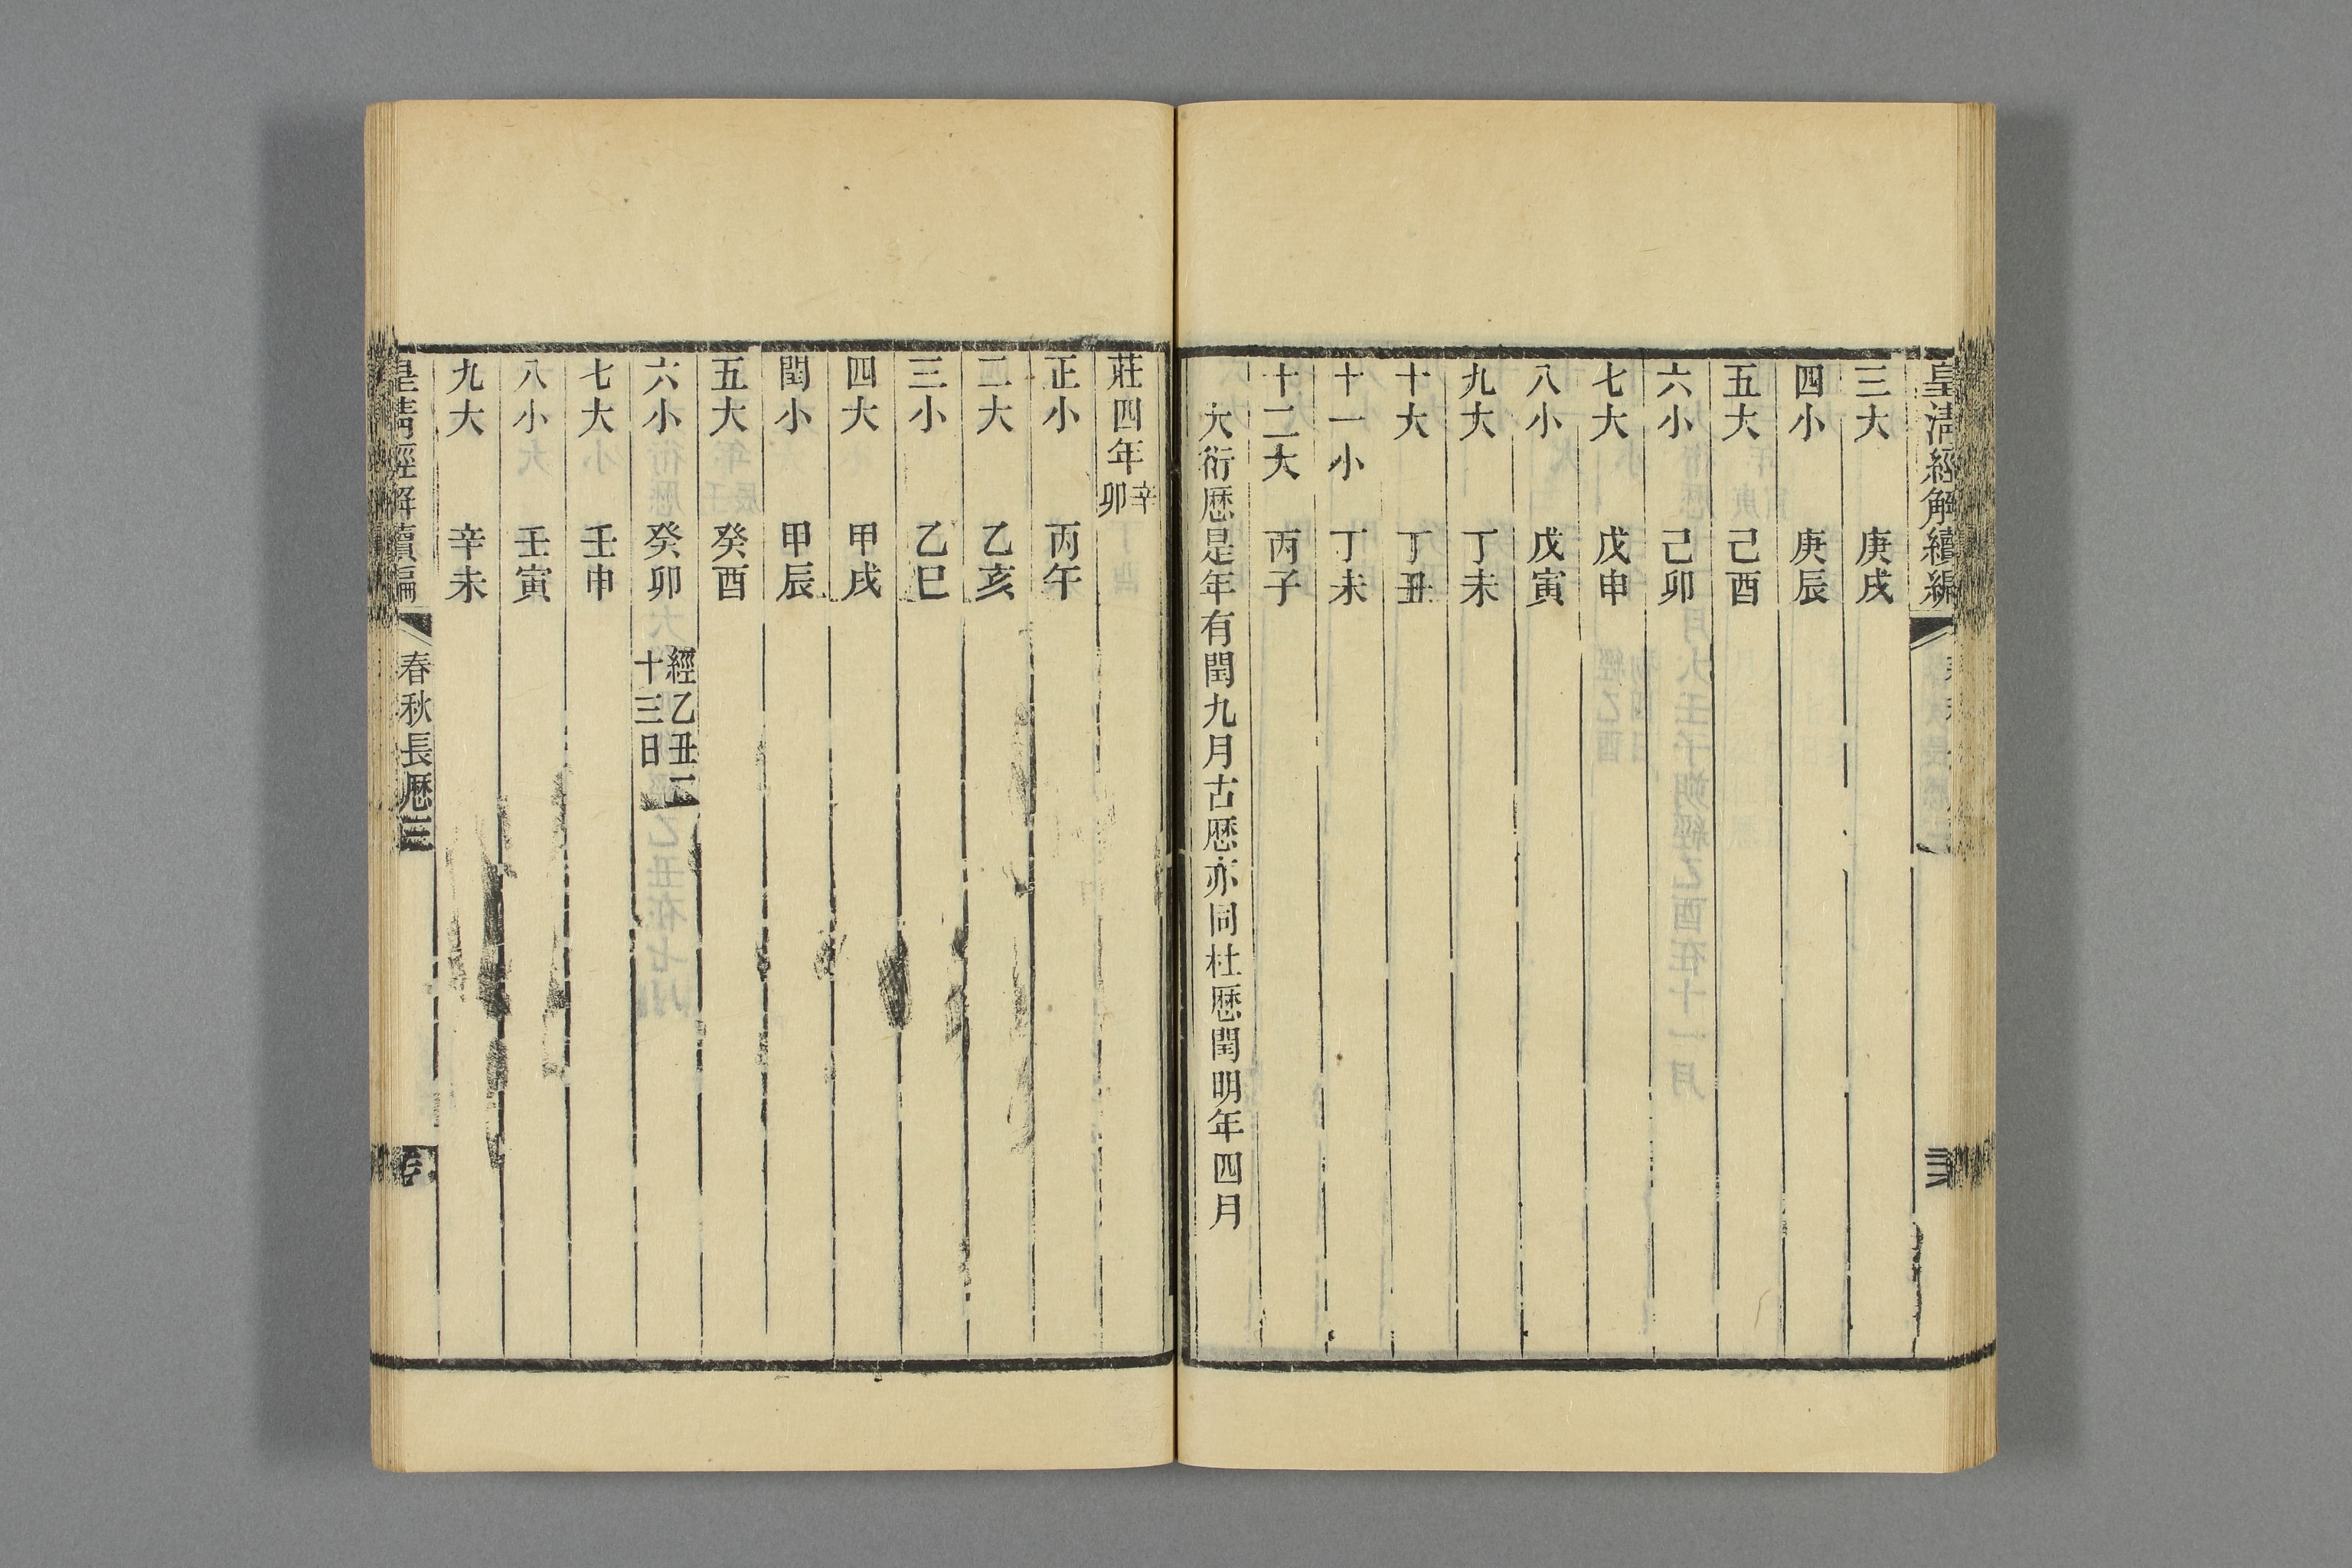 皇清經解續編
三大 庚戌
四小 庚辰
五大 己酉
六小 己卯
七大 戊申
八小 戊寅
九大 丁未
十大 丁丑
十一小 丁未
十二大 丙子
大衍厯是年有閏九月古厯亦同杜厯閏明年四月
莊四年辛卯
正小 丙午
二大 乙亥
三小 乙巳
四大 甲戌
閏小 甲辰
五大 癸酉
六小 癸卯 經乙丑二十三日
七大 壬申
八小 壬寅
九大 辛未
皇清經解續編 春秋長厯三